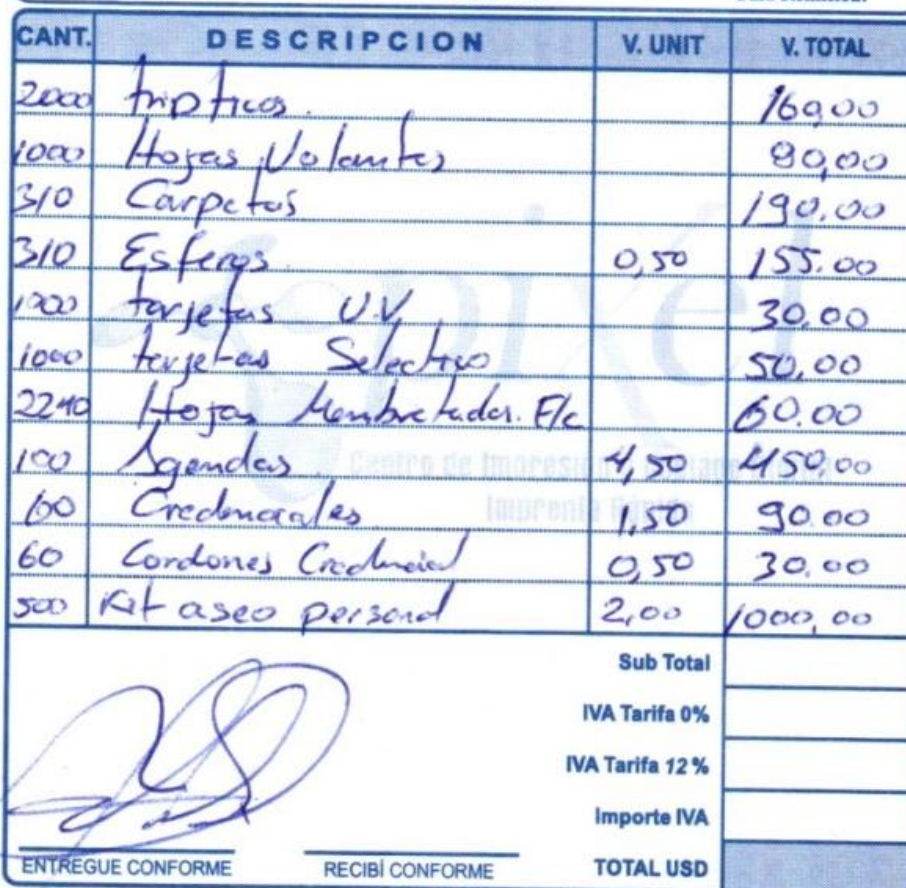 CANT. DESCRIPCION V. UNIT V. TOTAL
2000 tripticos. 160,00
1000 Hojas Volantes 90,00
310 Carpetas 190.00
310 Esferos 0,50 155.00
1000 tarjetas U.V. 30.00
1000 tarjetas Selectivo 50,00
2240 Hojas Membretadas. F/c 60.00
100 Agendas 4,50 450,00
60 Credenciales 1,50 90.00
60 Cordones Credencial 0,50 30.00
500 Kit aseo personal 2,00 1000,00
pixel
Centro de Impresión
Imprenta Rápida
Sub Total
IVA Tarifa 0%
IVA Tarifa 12%
Importe IVA
ENTREGUE CONFORME RECIBÍ CONFORME TOTAL USD